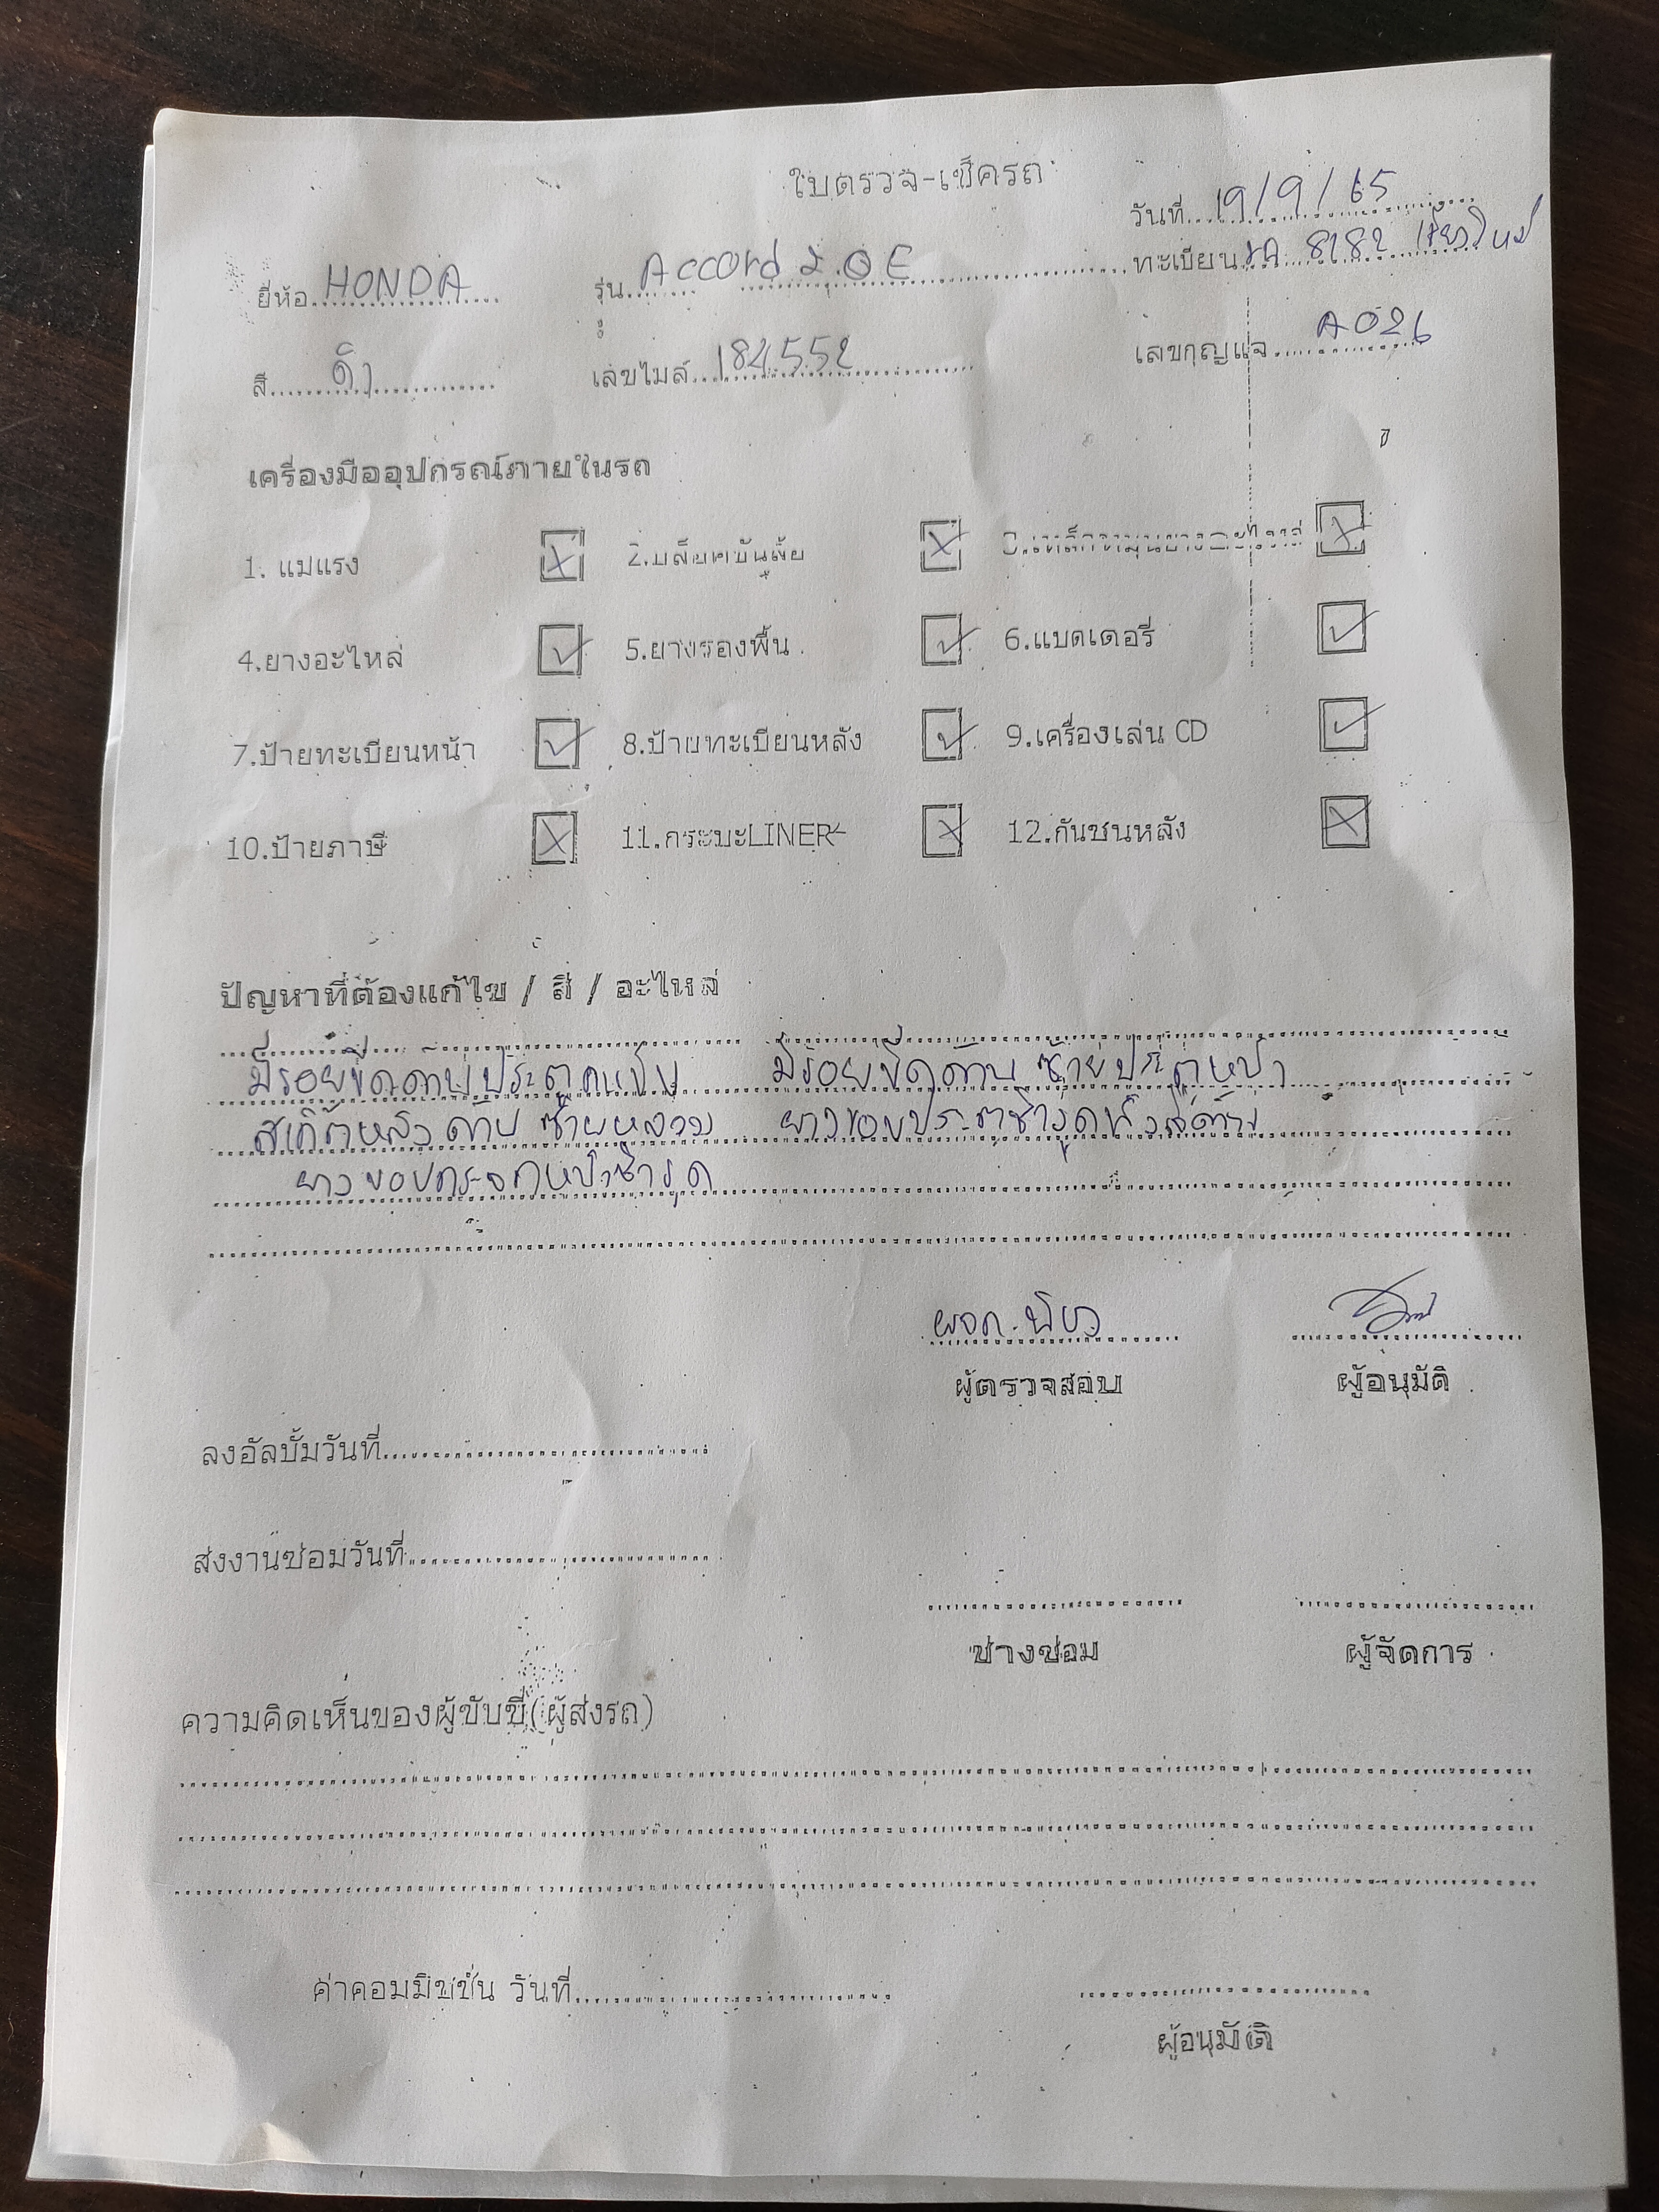 ใบตรวจ-เช็ครถ
วันที่ 19/9/65
ยี่ห้อ HONDA รุ่น Accord 2.0E ทะเบียน 8182 เชียงใหม่
สี ดำ เลขไมล์ 184552 เลขกุญแจ A026
เครื่องมืออุปกรณ์ภายในรถ
1. แม่แรง 2.บล็อคขันล้อ
4.ยางอะไหล่ 5.ยางรองพื้น 6.แบตเตอรี่
7.ป้ายทะเบียนหน้า 8.ป้ายทะเบียนหลัง 9.เครื่องเล่น CD
10.ป้ายภาษี 11.กระบะLINER 12.กันชนหลัง
ปัญหาที่ต้องแก้ไข / สี / อะไหล่
มีรอยขีดด้าน มีรอยขีดด้านซ้ายประตูหน้า
สเกิ๊ตหลังด้านซ้ายหลวม ยางขอบประตูชำรุดทั้งสี่ด้าน
ยางขอบกระจกหน้าชำรุด
ผจก.
ผู้ตรวจสอบ ผู้อนุมัติ
ลงอัลบั้มวันที่
ส่งงานซ่อมวันที่
ช่างซ่อม ผู้จัดการ
ความคิดเห็นของผู้ขับขี่(ผู้ส่งรถ)
ค่าคอมมิชชั่น วันที่
ผู้อนุมัติ